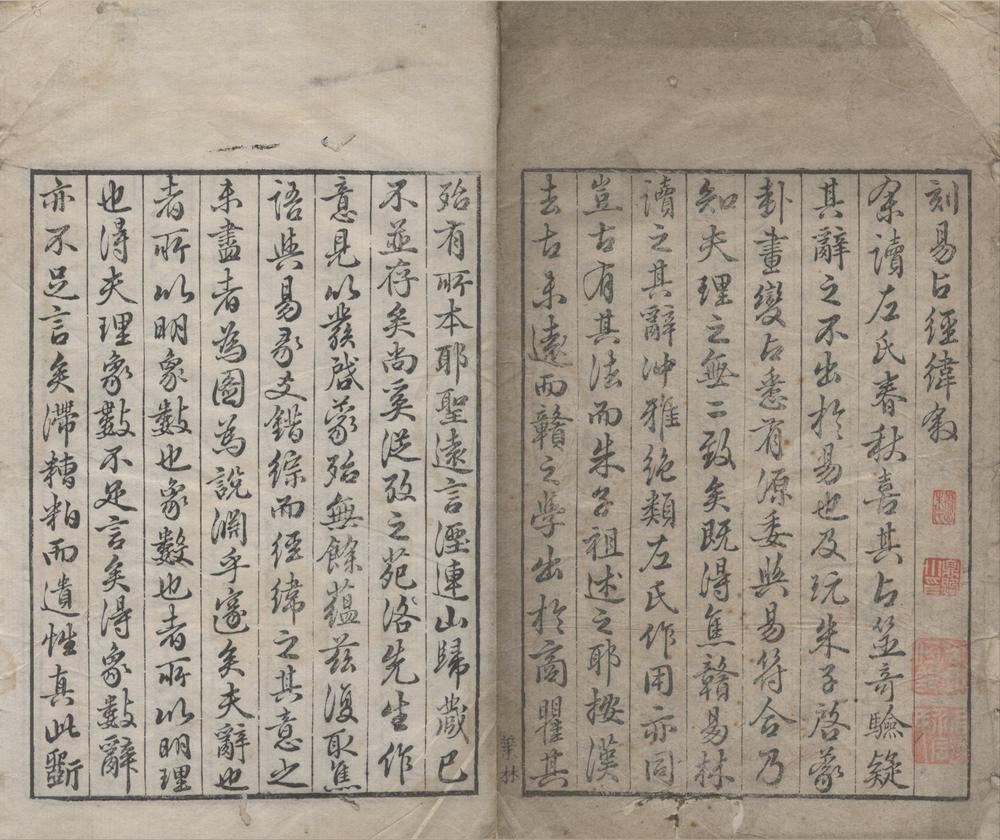 刻易占經緯敘
余讀左氏春秋喜其占筮奇驗疑
其辭之不出於易也及玩朱子啓蒙
卦畫變占悉有源委與易符合乃
知夫理之無二致矣既得焦贛易林
讀之其辭沖雅絶類左氏作用亦同
豈古有其法而朱子祖述之耶按漢
去古未遠而贛之學出於商瞿其
殆有所本耶聖遠言湮連山歸藏已
不並存矣尚奚從攷之苑洛先生作
意見以發啓蒙殆無餘蘊茲復取焦
語與易彖爻錯綜而經緯之其意之
未盡者為圖為說淵乎邃矣夫辭也
者所以明象數也象數也者所以明理
也得夫理象數不足言矣得象數辭
亦不足言矣滯糟粕而遺性真此斲
華林